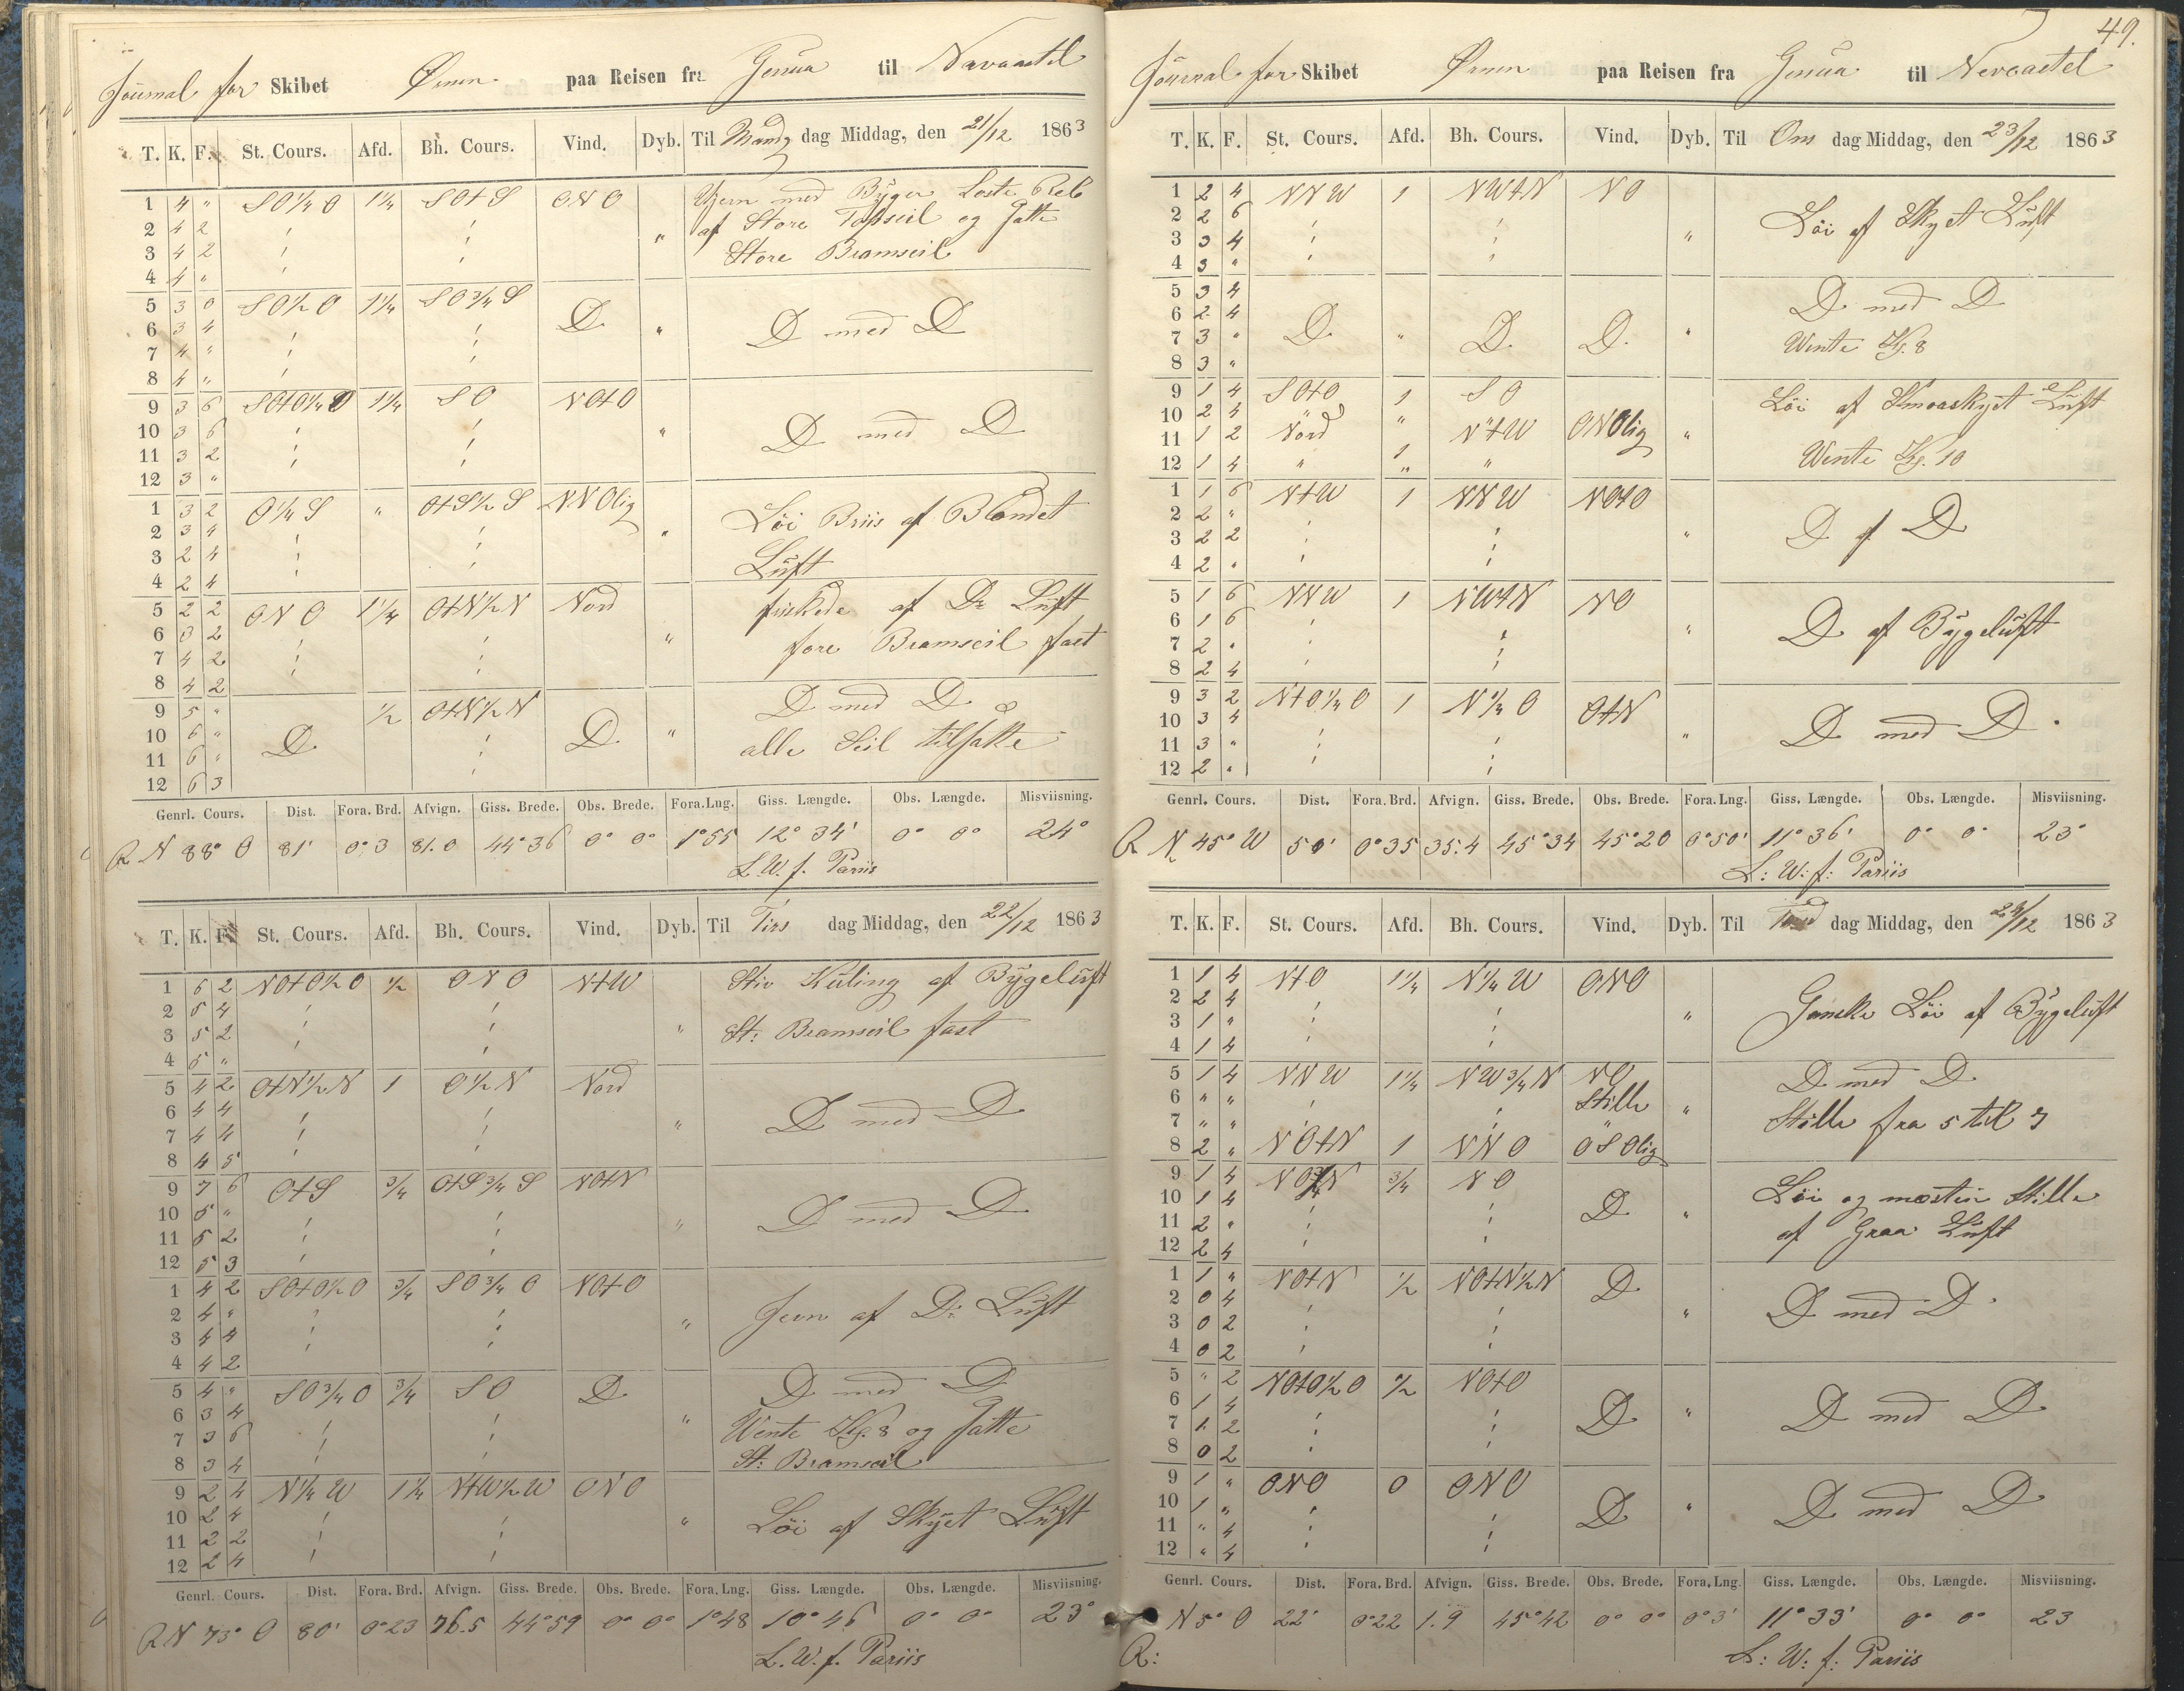 Journal for Skibet Ørnen paa Reisen fra Genua til Navcastel
T. K. F. St. Cours. Afd. Bh. Cours. Vind. Dyb. Til Mandg dag Middag, den 21/12 1863
1 4 " SO¼O 1¼ SO+S ONO Ujevn med Byger Loste Reb
2 4 2 af Store Topseil og Satte
3 4 2 " Store Bramseil
4 4 "
5 3 0 SO½O 1¼ SO¾S D " D med D
6 3 4
7 4 "
8 4 "
9 3 6 SO+O¼O 1¼ SO NO+O
10 3 6 " D med D
11 3 2
12 3 "
1 3 2 O¼S " O+S½S NNOlig Löi Briis af Blandet
2 3 4 "
3 2 4 Luft
4 2 4
5 2 2 ONO 1¼ O+N½N Nord friskede af Do Luft
6 3 2 "
7 4 2 fore Bramseil fast
8 4 2
9 5 " ½ O+N½N D med D
10 6 " D D " alle Seil tilsatte
11 6 "
12 6 3
Genrl. Cours. Dist. Fora. Brd. Afvign. Giss. Brede. Obs. Brede. Fora. Lng. Giss. Længde. Obs. Længde. Misviisning.
R N 88° O 81' 0°3 81.0 44°36 0° 0° 1°55 12° 34' 0° 0° 24°
L. W. f. Pariis
T. K. F. St. Cours. Afd. Bh. Cours. Vind. Dyb. Til Tirs dag Middag, den 22/12 1863
1 6 2 NO+O½O ½ ONO N+W Stiv Kuling af Bygeluft
2 5 4
3 5 2 " St: Bramseil fast
4 5 "
5 4 2 O+N½N 1 O½N Nord
6 4 4 " D med D
7 4 4
8 4 5
9 7 6 O+S ¾ O+S¾S NO+N
10 5 " " D med D
11 5 2
12 5 3
1 4 2 SO+O½O ¾ SO¾O NO+O
2 4 " " Jevn af Do: Luft
3 4 4
4 4 2
5 4 " SO¾O ¾ SO D D med D
6 3 4 " Vente Kl. 8 og Satte
7 3 6
8 3 4 St: Bramseil
9 2 4 N¼W 1¼ N+W½W ONO
10 2 4 " Löi af Skyet Luft
11 2 2
12 2 4
Genrl. Cours. Dist. Fora. Brd. Afvign. Giss. Brede. Obs. Brede. Fora. Lng. Giss. Længde. Obs. Længde. Misviisning.
R N 73° O 80' 0°23 76.5 44°59 0° 0° 1°48 10° 46' 0° 0° 23°
L. W. f. Pariis
49.
Journal for Skibet Ørnen paa Reisen fra Genua til Nevcastel
T. K. F. St. Cours. Afd. Bh. Cours. Vind. Dyb. Til Ons dag Middag, den 23/12 1863
1 2 4 NNW 1 NW+N NO
2 2 6 Löi af Skyet Luft
3 3 4 "
4 3 "
5 3 4 D med D
6 2 4 D " D D "
7 3 " Wente Kl. 8
8 3 "
9 1 4 SO+O 1 SO Löi af Smaaskyet Luft
10 2 4 Nord " N+W ONOlig "
11 1 2 1
12 1 4 " " " Wente Kl. 10
1 1 6 N+W 1 NNW NO+O
2 2 " D af D
3 2 2 "
4 2 "
5 1 6 NNW 1 NW+N NO
6 1 6 " D af Bygeluft
7 2 "
8 2 4
9 3 2 N+O¼O 1 N¼O O+N
10 3 4 " D med D
11 3 "
12 2 "
Genrl. Cours. Dist. Fora. Brd. Afvign. Giss. Brede. Obs. Brede. Fora. Lng. Giss. Længde. Obs. Længde. Misviisning.
R N 45° W 50' 0°35 35.4 45°34 45°20 0°50' 11° 36' 0° 0° 23°
L: W: f: Pariis
T. K. F. St. Cours. Afd. Bh. Cours. Vind. Dyb. Til dag Middag, den 24/12 1863
1 1 4 N+O 1¼ N¼W ONO
2 2 4 Ganske Löi af Bygeluft
3 1 " "
4 1 4
5 1 4 NNW 1¼ NW¾N NO D med D
6 " " Stille "
7 " " " Stille fra 5 til 7
8 2 " NO+N 1 NNO OSOlig
9 1 4 NO¾N ¾ NO Löi og mæsten Stille
10 1 4 D "
11 2 " af Graa Luft
12 2 4
1 1 " NO+N ½ NO+N½N D
2 0 4 " D med D
3 0 2
4 0 2
5 " 2 NO+O½O ½ NO+O
6 1 4 D " D med D
7 1 2
8 0 2
9 1 " ONO 0 ONO
10 1 " D " D med D
11 " 4
12 " 4
Genrl. Cours. Dist. Fora. Brd. Afvign. Giss. Brede. Obs. Brede. Fora. Lng. Giss. Længde. Obs. Længde. Misviisning.
N 5° O 22' 0°22 1.9 45°42 0° 0° 0°3' 11° 33' 0° 0° 23
R: L: W: f: Pariis